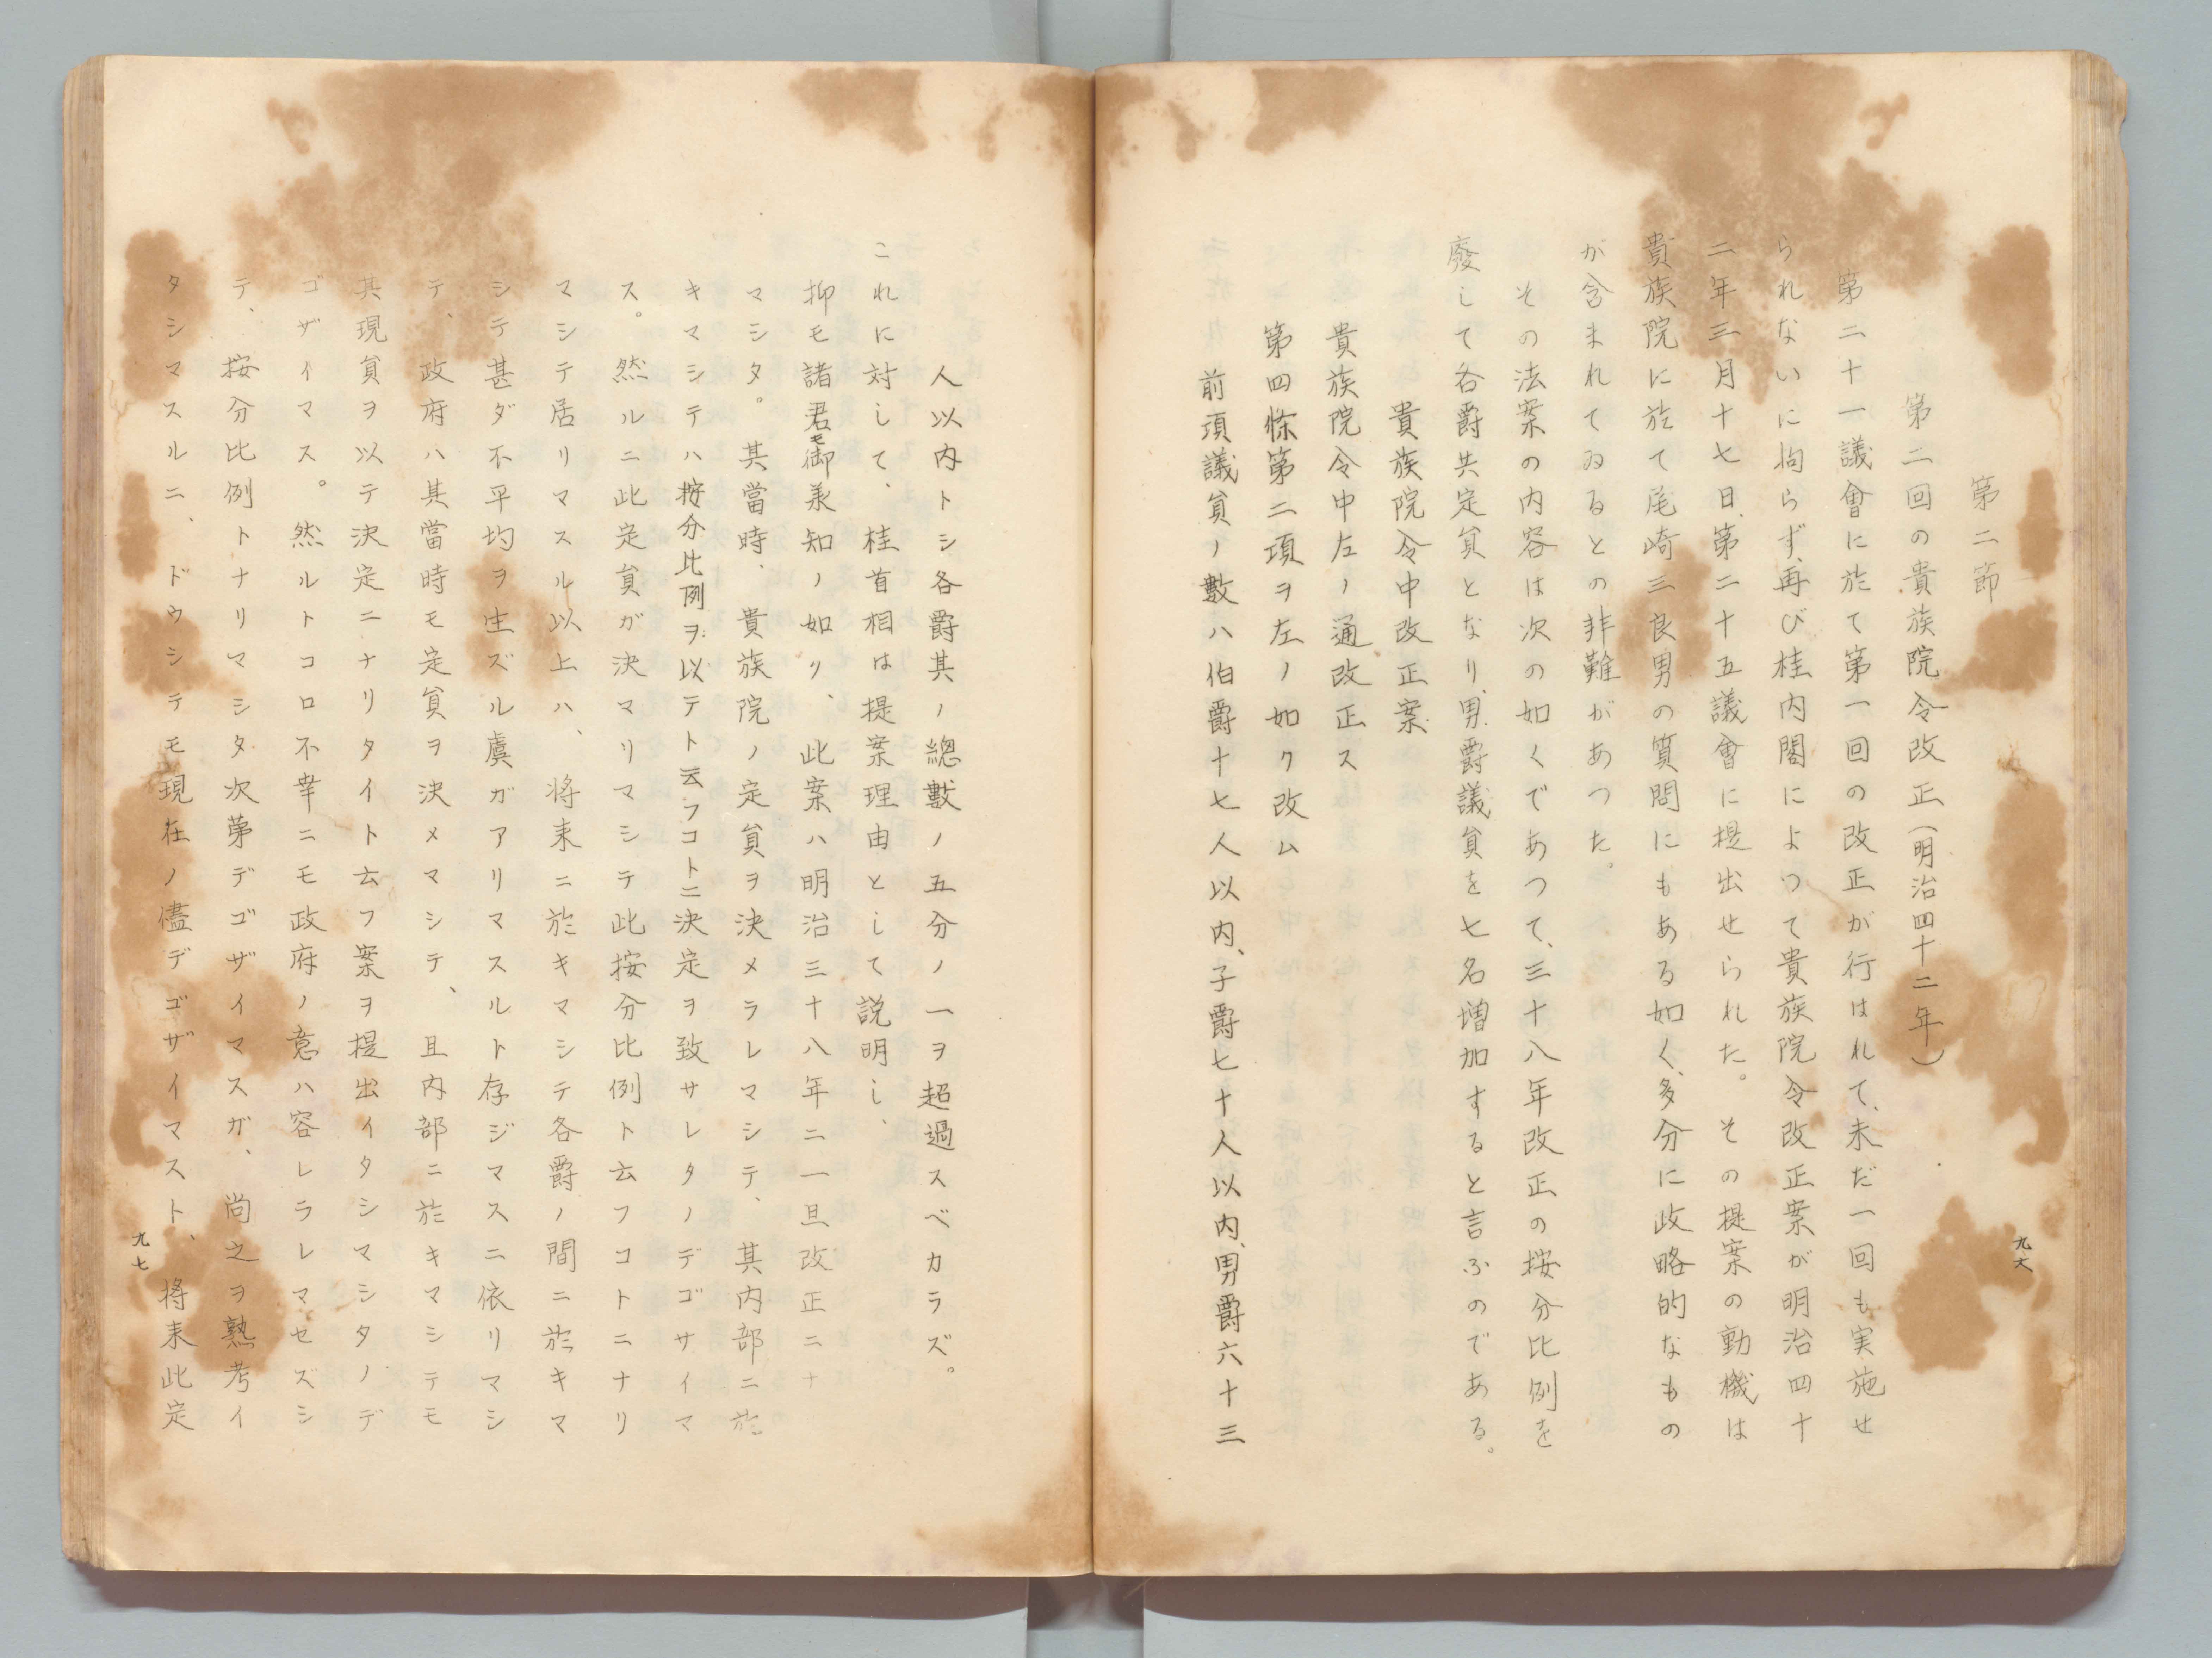 第二節
第二回の貴族院令改正(明治四十二年)
第二十一議會に於て第一回の改正が行はれて、未だ一回も実施せ
られないに拘らず、再び桂内閣によつて貴族院令改正案が明治四十
二年三月十七日、第二十五議會に提出せられた。その提案の動機は
貴族院に於て尾崎三良男の質問にもある如く、多分に政略的なもの
が含まれてゐるとの非難があつた。
その法案の内容は次の如くであつて、三十八年改正の按分比例を
廢して各爵共定貟となり、男爵議貟を七名増加すると言ふのである。
貴族院令中改正案
貴族院令中左ノ通改正ス
第四條第二項ヲ左ノ如ク改ム
前項議貟ノ數ハ伯爵十七人以内、子爵七十人以内、男爵六十三
九六
人以内トシ各爵其ノ總數ノ五分ノ一ヲ超過スベカラズ。
これに対して、桂首相は提案理由として説明し、
抑モ諸君モ御承知ノ如ク、此案ハ明治三十八年ニ一旦改正ニナ
マシタ。其當時、貴族院ノ定貟ヲ決メラレマシテ、其内部ニ於
キマシテハ按分比例ヲ以テト云フコトニ決定ヲ致サレタノデゴサイマ
ス。然ルニ此定貟ガ決マリマシテ此按分比例ト云フコトニナリ
マシテ居リマスル以上ハ、将来ニ於キマシテ各爵ノ間ニ於キマ
シテ甚ダ不平均ヲ生ズル虞ガアリマスルト存ジマスニ依リマシ
テ、政府ハ其當時モ定貟ヲ決メマシテ、且内部ニ於キマシテモ
其現貟ヲ以テ決定ニナリタイト云フ案ヲ提出イタシマシタノデ
ゴザイマス。然ルトコロ不幸ニモ政府ノ意ハ容レラレマセズシ
テ、按分比例トナリマシタ次第デゴザイマスガ、尚之ヲ熟考イ
タシマスルニ、ドウシテモ現在ノ儘デゴザイマスト、将来此定
九七